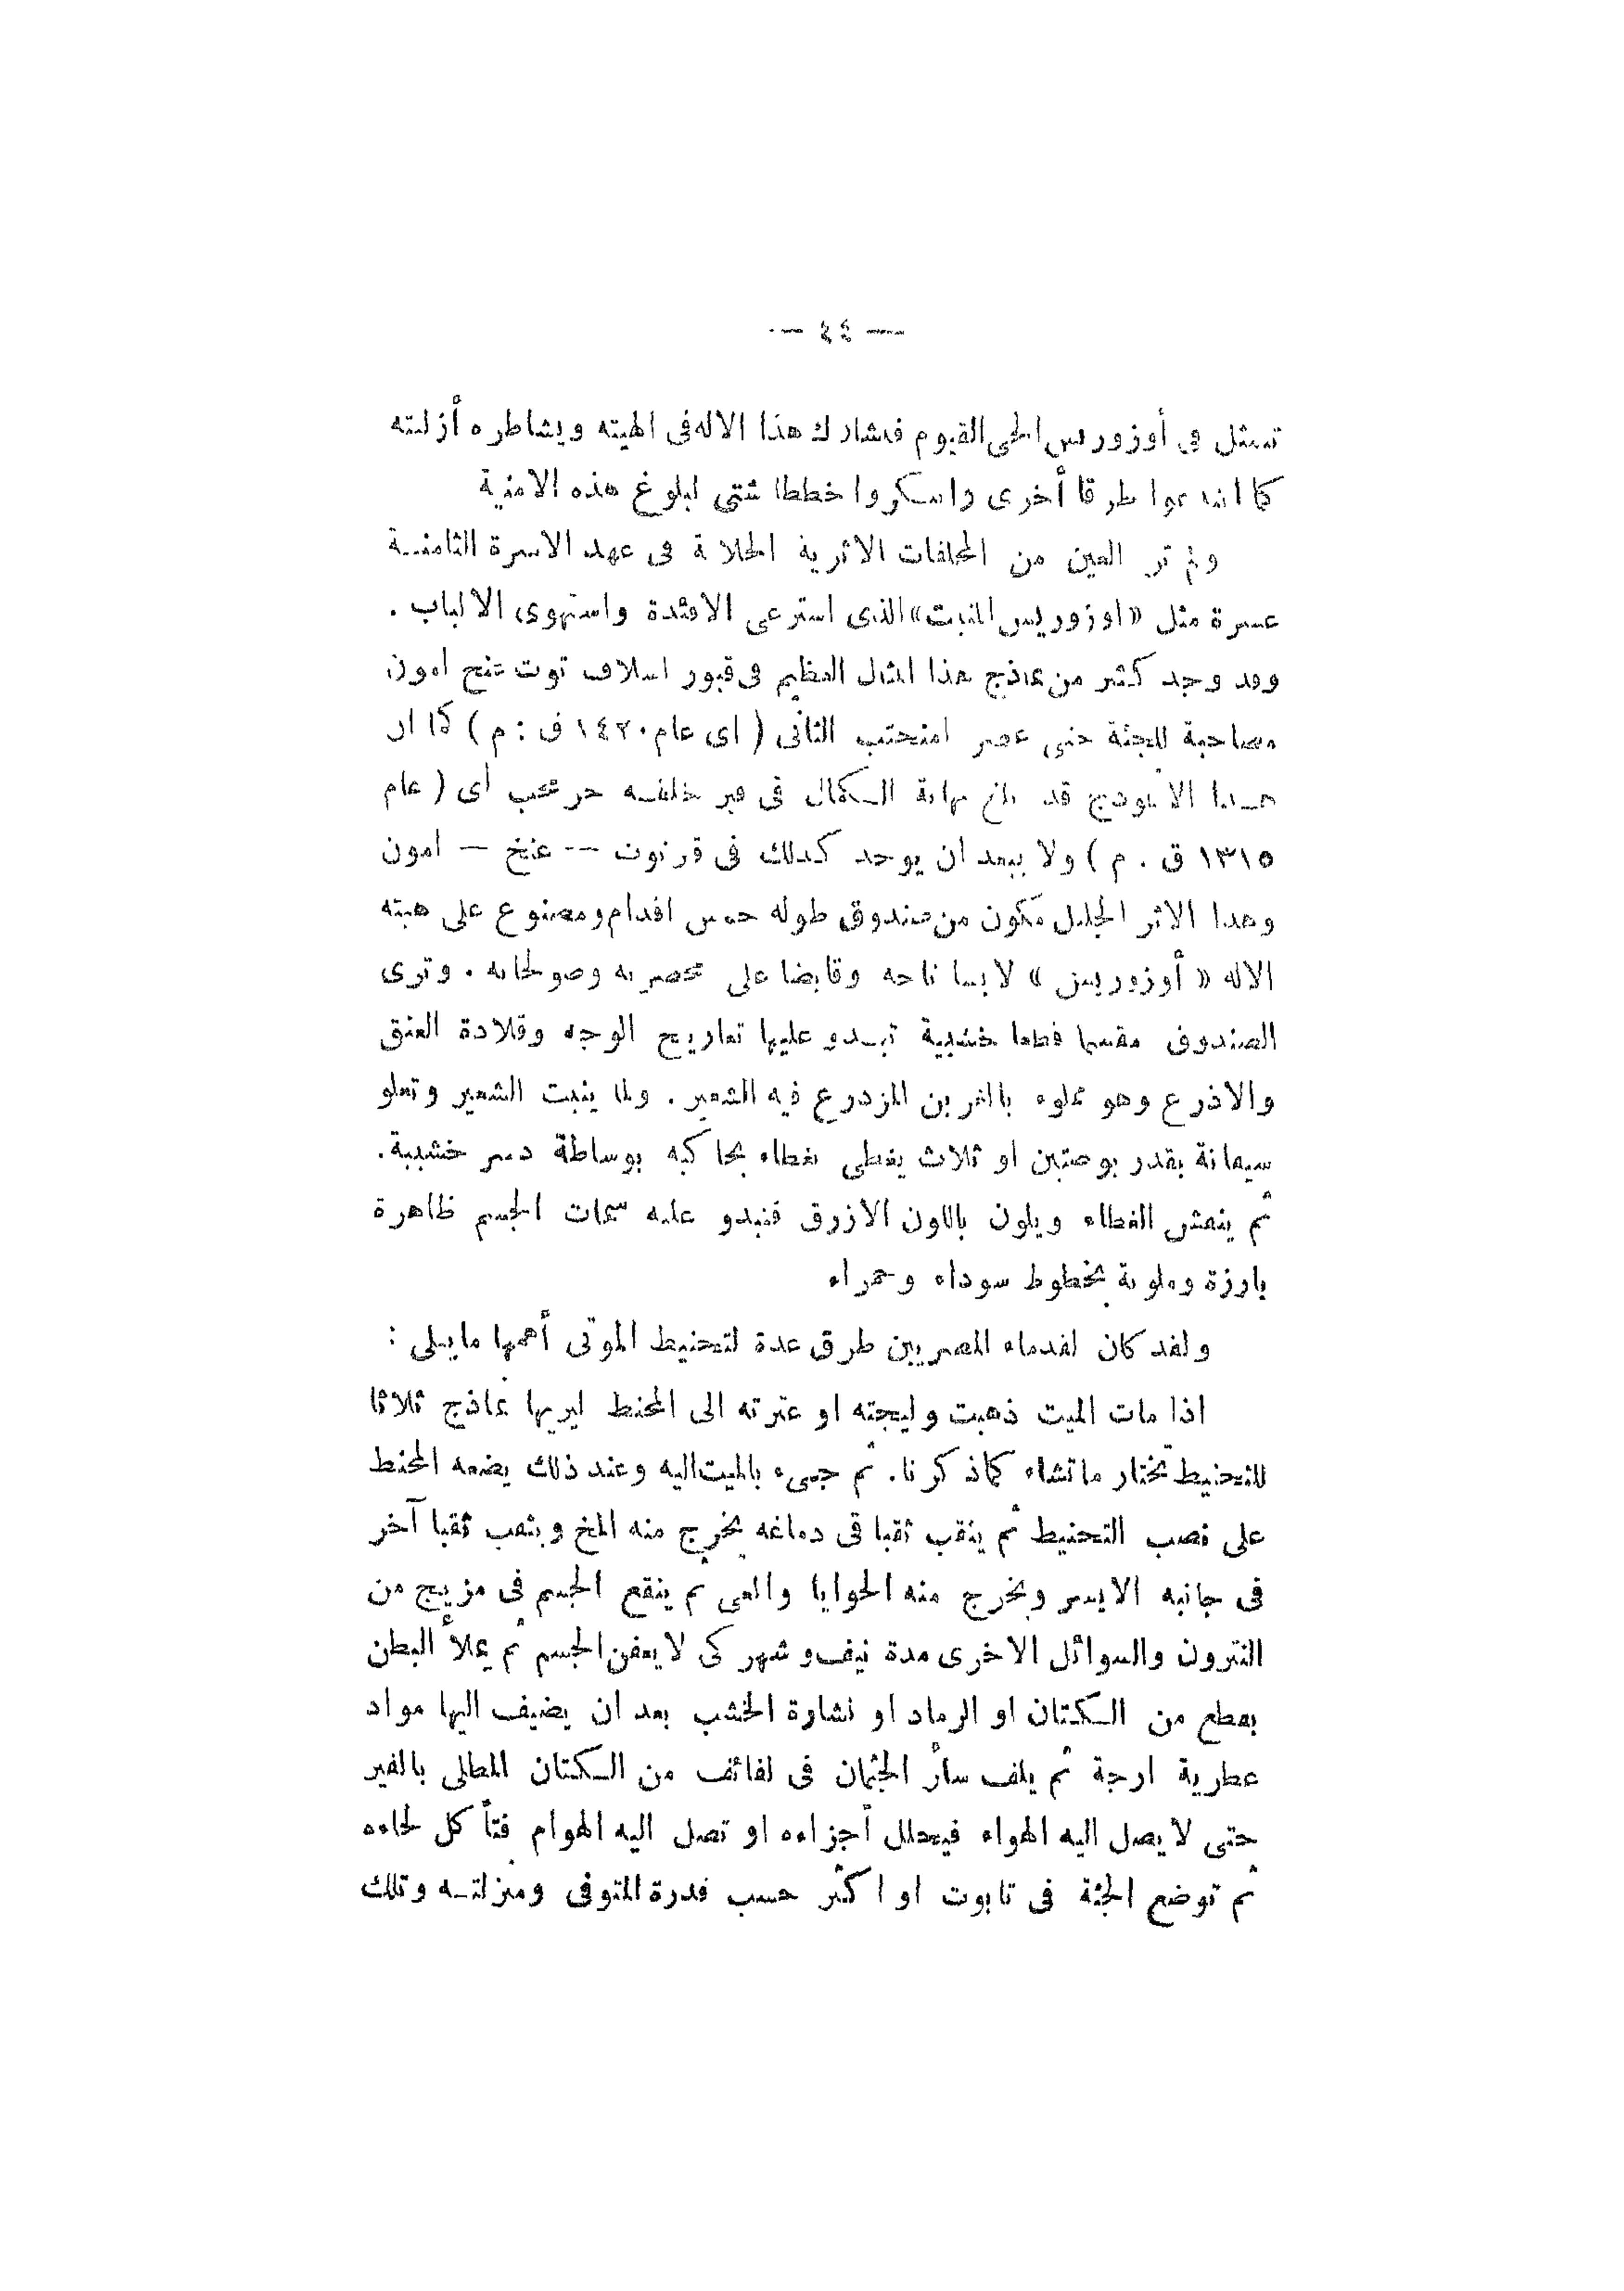 — ٤٤ —
تتمثل في أوزوريس الحي القيوم فيشارك هذا الاله في الهيته ويشاطره أزليته
كما ابتدعوا طرقا أخرى وابتكروا خططا شتى لبلوغ هذه الامنية
ولم تر العين من المخلفات الاثرية الخلابة في عهد الاسرة الثامنة
عشرة مثل «اوزوريس المنبت» الذي استرعى الافئدة واستهوى الالباب .
وقد وجد كثير من نماذج هذا المثال العظيم في قبور اسلاف توت عنخ امون
مصاحبة للجثة حتى عصر امنحتب الثاني ( اى عام ١٤٢٠ ق : م ) كما ان
هذا الانموذج قد بلغ نهاية الكمال في قبر خلفه حر محب أى ( عام
١٣١٥ ق . م ) ولا يبعد ان يوجد كذلك في قبر توت — عنخ — امون
وهذا الاثر الجليل مكون من صندوق طوله خمس اقدام ومصنوع على هيئة
الاله « أوزوريس » لابسا تاجه وقابضا على مخصرته وصولجانه . وترى
الصندوق مقسما قطعا خشبية تبدو عليها تعاريج الوجه وقلادة العنق
والاذرع وهو مملوء بالغرين المزدرع فيه الشعير . ولما ينبت الشعير وتعلو
سيقانه بقدر بوصتين او ثلاث يغطى بغطاء يحاكيه بوساطة دسر خشبية .
ثم ينقش الغطاء ويلون باللون الازرق فتبدو عليه سمات الجسم ظاهرة
بارزة وملونة بخطوط سوداء وحمراء
ولقد كان لقدماء المصريين طرق عدة لتحنيط الموتى أهمها مايلى :
اذا مات الميت ذهبت وليجته او عترته الى المحنط ليريها نماذج ثلاثا
للتحنيط تختار ماتشاء كما ذكرنا . ثم جىء بالميت اليه وعند ذلك يضعه المحنط
على نصب التحنيط ثم ينقب ثقبا في دماغه يخرج منه المخ ويثقب ثقبا آخر
في جانبه الايسر ويخرج منه الحوايا والمعى ثم ينقع الجسم في مزيج من
النترون والسوائل الاخرى مدة نيف وشهر كى لايعفن الجسم ثم يملأ البطن
بقطع من الكتان او الرماد او نشارة الخشب بعد ان يضيف اليها مواد
عطرية ارجة ثم يلف سائر الجثمان في لفائف من الكتان المطلى بالقير
حتى لا يصل اليه الهواء فيحلل أجزاءه او تصل اليه الهوام فتأكل لحاءه
ثم توضع الجثة في تابوت او اكثر حسب قدرة المتوفى ومنزلته وتلك